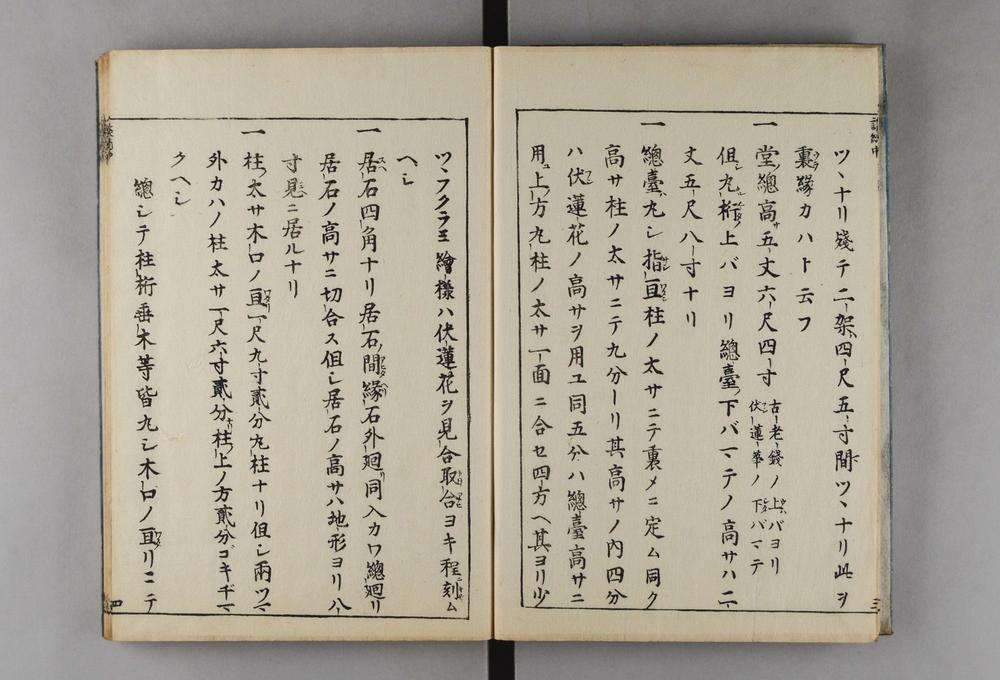 ツヽ十リ殘テ二架四尺五寸間ツヽ十リ此ヲ
裏縁カハト云フ
一 堂ノ總高サ五丈六尺四寸 古老錢ノ上バヨリ
伏蓮華ノ下バマテ
但シ丸桁上バヨリ總臺ノ下バマテノ高サハ二
丈五尺八寸十リ
一 總臺ハ丸シ指亘柱ノ太サニテ裏メニ定ム同ク
高サ柱ノ太サニテ九分一リ其高サノ内四分
ハ伏蓮花ノ高サヲ用ユ同五分ハ總臺高サニ
用上ノ方丸柱ノ太サ一面ニ合セ四方ヘ其ヨリ少
三
ツヽフクラミ繪様ハ伏蓮花ヲ見合取合ヨキ程ニ刻ム
ヘシ
一 居石四角十リ居石ノ間縁石外廻リ同入カワ總廻リ
居石ノ高サニ切合ス但シ居石ノ高サハ地形ヨリ八
寸見ニ居ル十リ
一 柱ノ太サ木口ノ亘一尺九寸貳分丸柱十リ但シ兩ツマ
外カハノ柱太サ一尺六寸貳分十リ柱ノ上ノ方貳分コキヂマ
クヘシ
總シテ柱桁垂木等皆丸シ木口ノ亘リニテ
四